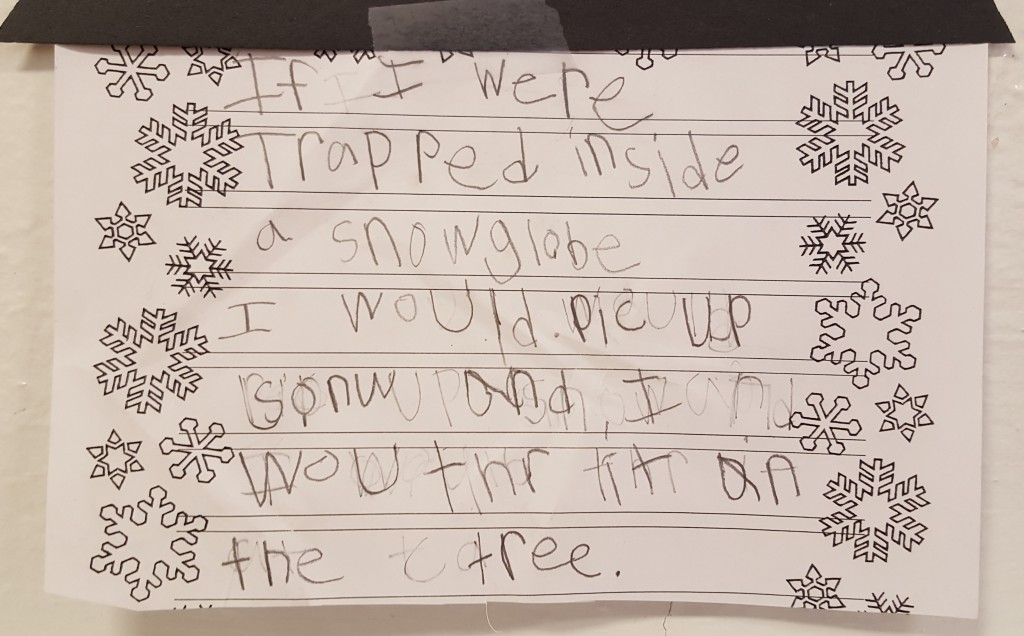 If I were
Trapped inside
a snowglobe
I would. pic up
sonw and I
wou thr it on
the tree.